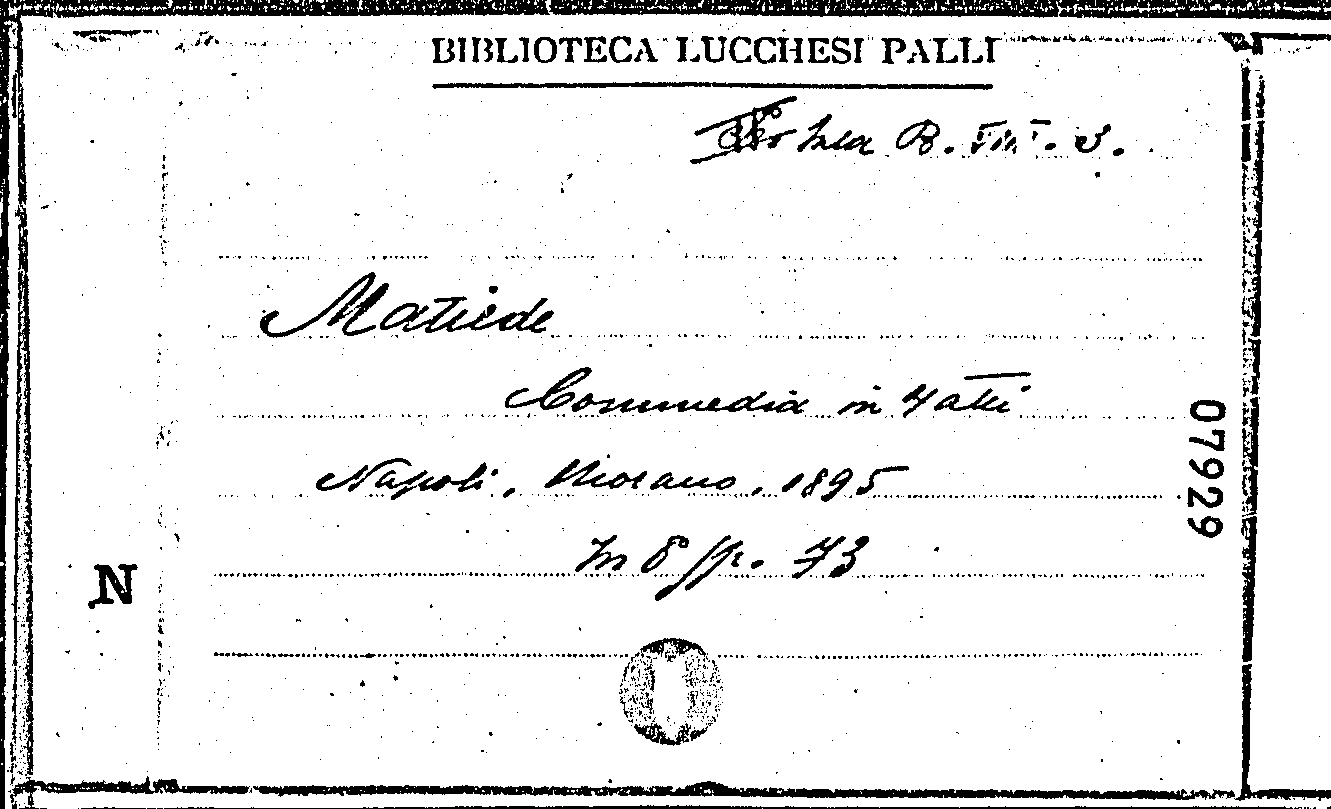 BIBLIOTECA LUCCHESI PALLI
B. VIII. 3.
Matilde
Commedia in 4 atti
Napoli, Morano, 1895
In 8° pp. 73
07929
N